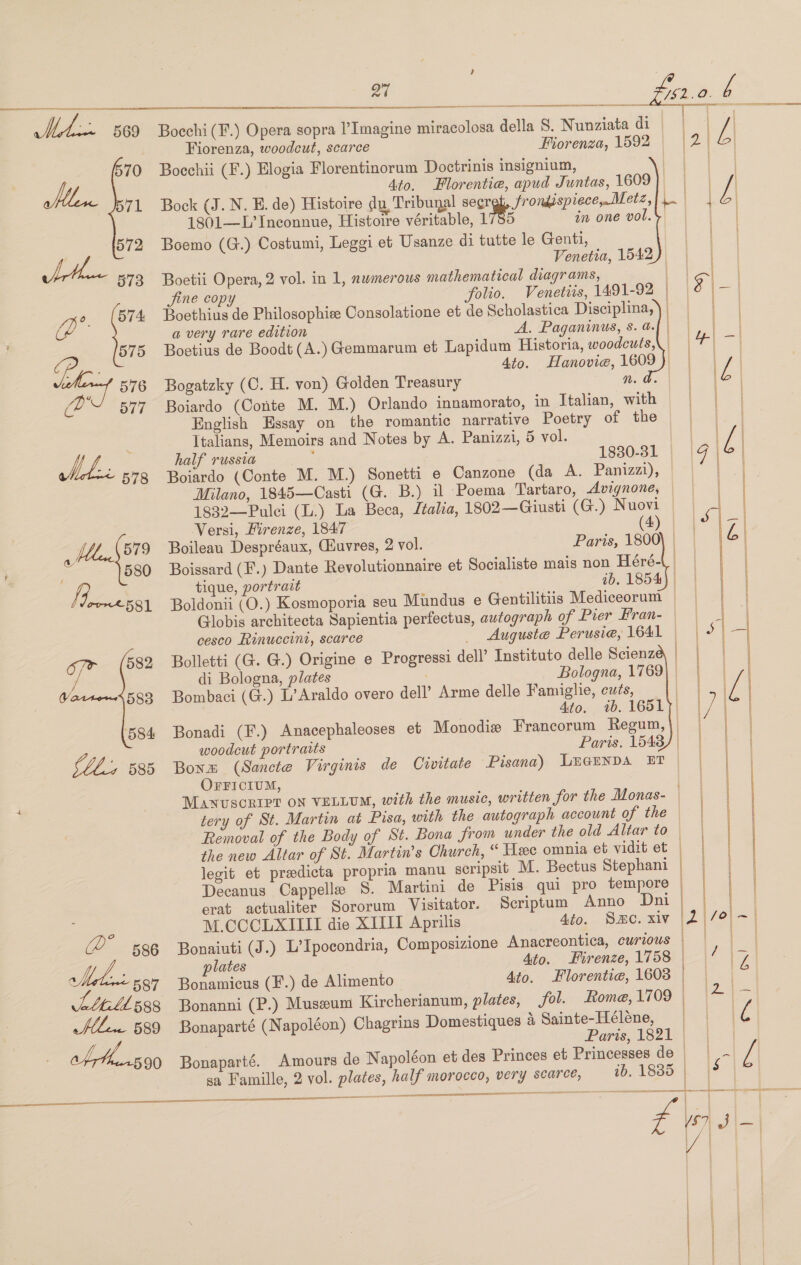 27 £152.0.6
Molini 569 Bocchi (F.) Opera sopra l'Imagine miracolosa della S. Nunziata di
Fiorenza, woodcut, scarce Fiorenza, 1592 2 6
570 Bocchii (F.) Elogia Florentinorum Doctrinis insignium,
4to. Florentiæ, apud Juntas, 1609
Allen 571 Bock (J. N. E. de) Histoire du Tribunal secret, frontispiece, Metz,
1801—L'Inconnue, Histoire véritable, 1785 in one vol.
572 Boemo (G.) Costumi, Leggi et Usanze di tutte le Genti,
Venetia, 1542
Arthur 573 Boetii Opera, 2 vol. in 1, numerous mathematical diagrams,
fine copy folio. Venetiis, 1491-92 8 –
Do 574 Boethius de Philosophiæ Consolatione et de Scholastica Disciplina,
a very rare edition A. Paganinus, s. a.
575 Boetius de Boodt (A.) Gemmarum et Lapidum Historia, woodcuts, 4 –
4to. Hanoviæ, 1609
576 Bogatzky (C. H. von) Golden Treasury n. d. 6
577 Boiardo (Conte M. M.) Orlando innamorato, in Italian, with
English Essay on the romantic narrative Poetry of the
Italians, Memoirs and Notes by A. Panizzi, 5 vol.
half russia 1830-31 9 6
Molini 578 Boiardo (Conte M. M.) Sonetti e Canzone (da A. Panizzi),
Milano, 1845—Casti (G. B.) il Poema Tartaro, Avignone,
1832—Pulci (L.) La Beca, Italia, 1802—Giusti (G.) Nuovi
Versi, Firenze, 1847 (4) 5 –
Allen 579 Boileau Despréaux, Œuvres, 2 vol. Paris, 1800 6
580 Boissard (F.) Dante Revolutionnaire et Socialiste mais non Héré-
tique, portrait ib. 1854
581 Boldonii (O.) Kosmoporia seu Mundus e Gentilitiis Mediceorum
Globis architecta Sapientia perfectus, autograph of Pier Fran-
cesco Rinuccini, scarce Augustæ Perusiæ, 1641 5 –
582 Bolletti (G. G.) Origine e Progressi dell' Instituto delle Scienze
di Bologna, plates Bologna, 1769
583 Bombaci (G.) L'Araldo overo dell' Arme delle Famiglie, cuts,
4to. ib. 1651 7 6
584 Bonadi (F.) Anacephaleoses et Monodiæ Francorum Regum,
woodcut portraits Paris. 1543
Ellis 585 Bonæ (Sanctæ Virginis de Civitate Pisana) Legenda et
Officium,
Manuscript on vellum, with the music, written for the Monas-
tery of St. Martin at Pisa, with the autograph account of the
Removal of the Body of St. Bona from under the old Altar to
the new Altar of St. Martin's Church, “Hæc omnia et vidit et
legit et prædicta propria manu scripsit M. Bectus Stephani
Decanus Cappellæ S. Martini de Pisis qui pro tempore
erat actualiter Sororum Visitator. Scriptum Anno Dni
M.CCCLXIIII die XIIII Aprilis 4to. Sæc. xiv 2 10 –
Do 586 Bonaiuti (J.) L'Ipocondria, Composizione Anacreontica, curious
plates 4to. Firenze, 1758 1 –
Molini 587 Bonamicus (F.) de Alimento 4to. Florentiæ, 1603 6
588 Bonanni (P.) Musæum Kircherianum, plates, fol. Romæ, 1709 2 –
Allen 589 Bonaparté (Napoléon) Chagrins Domestiques à Sainte-Hélène,
Paris, 1821 6
Arthur 590 Bonaparté. Amours de Napoléon et des Princes et Princesses de
sa Famille, 2 vol. plates, half morocco, very scarce, ib. 1835 5 6
£ 157 3 –